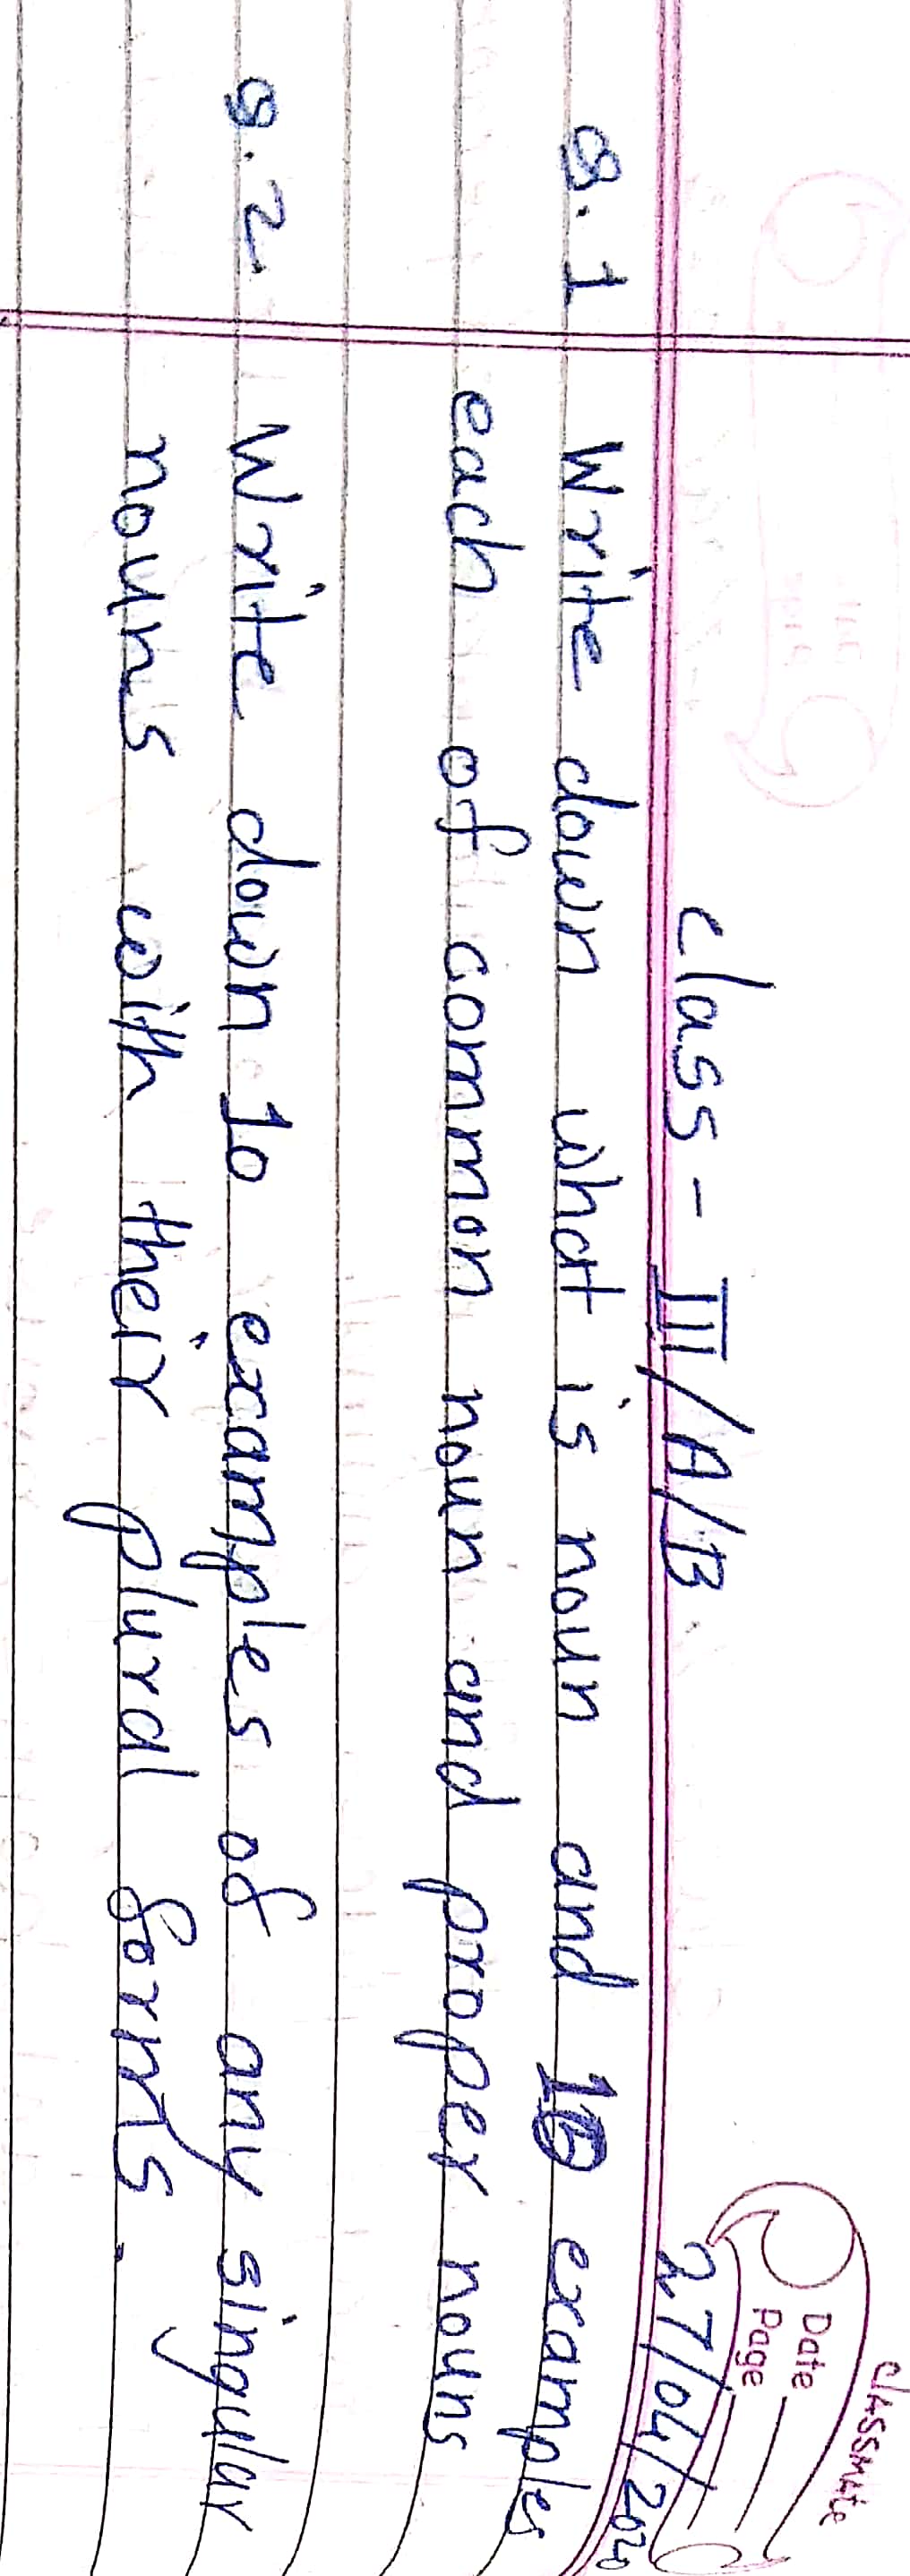 classmate
Date
Page
27/04/2020
class - III/A/B
Q.1 Write down what is noun and 10 examples
each of common noun and proper nouns
Q.2. Write down 10 examples of any singular
nouns with their plural forms.